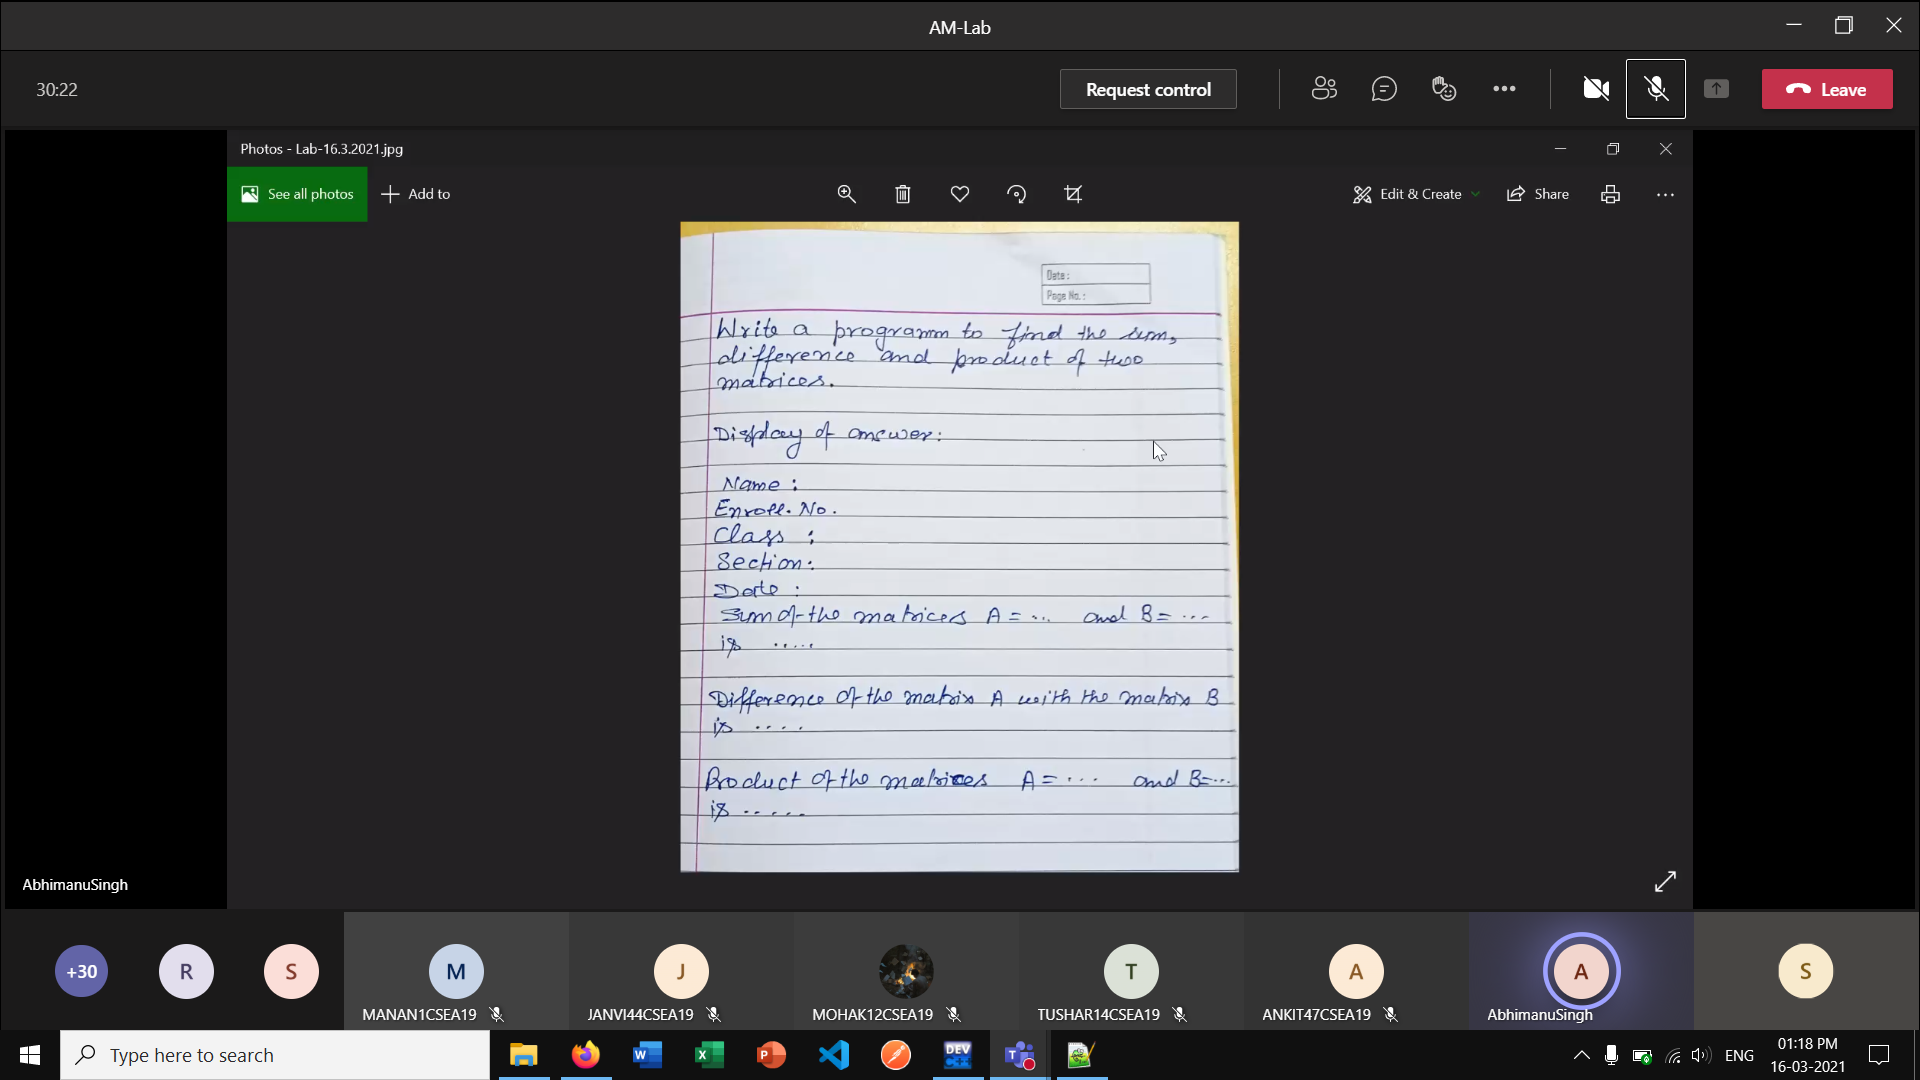 AM-Lab
30:22
Request control
Leave
Photos - Lab-16.3.2021.jpg
See all photos
Add to
Edit & Create
Share
Date :
Page No. :
Write a programm to find the sum,
difference and product of two
matrices.
Display of answer:
Name :
Enroll. No.
Class :
Section:
Date :
Sum of the matrices A = ... and B = ...
is .....
Difference of the matrix A with the matrix B
is ....
Product of the matrices A = ... and B=...
is .....
AbhimanuSingh
+30
R
S
M
J
T
A
A
S
MANAN1CSEA19
JANVI44CSEA19
MOHAK12CSEA19
TUSHAR14CSEA19
ANKIT47CSEA19
AbhimanuSingh
Type here to search
W
X
P
DEV
C++
T
ENG
01:18 PM
16-03-2021